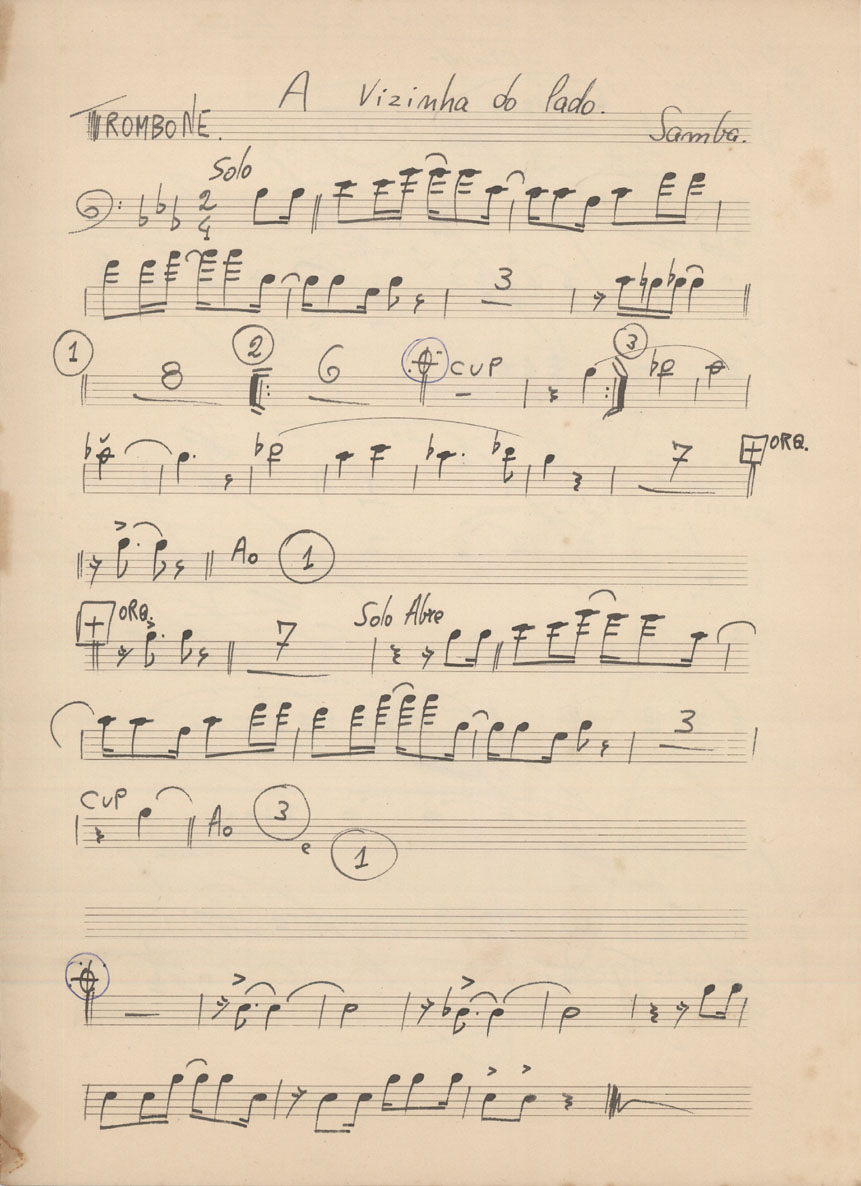 A Vizinha do Lado.
TROMBONE. Samba.
Solo
2
4
3
1 8 2 6 CUP 3
7 ORQ.
Ao 1
ORQ. 7 Solo Abre
3
CUP
Ao 3 e 1